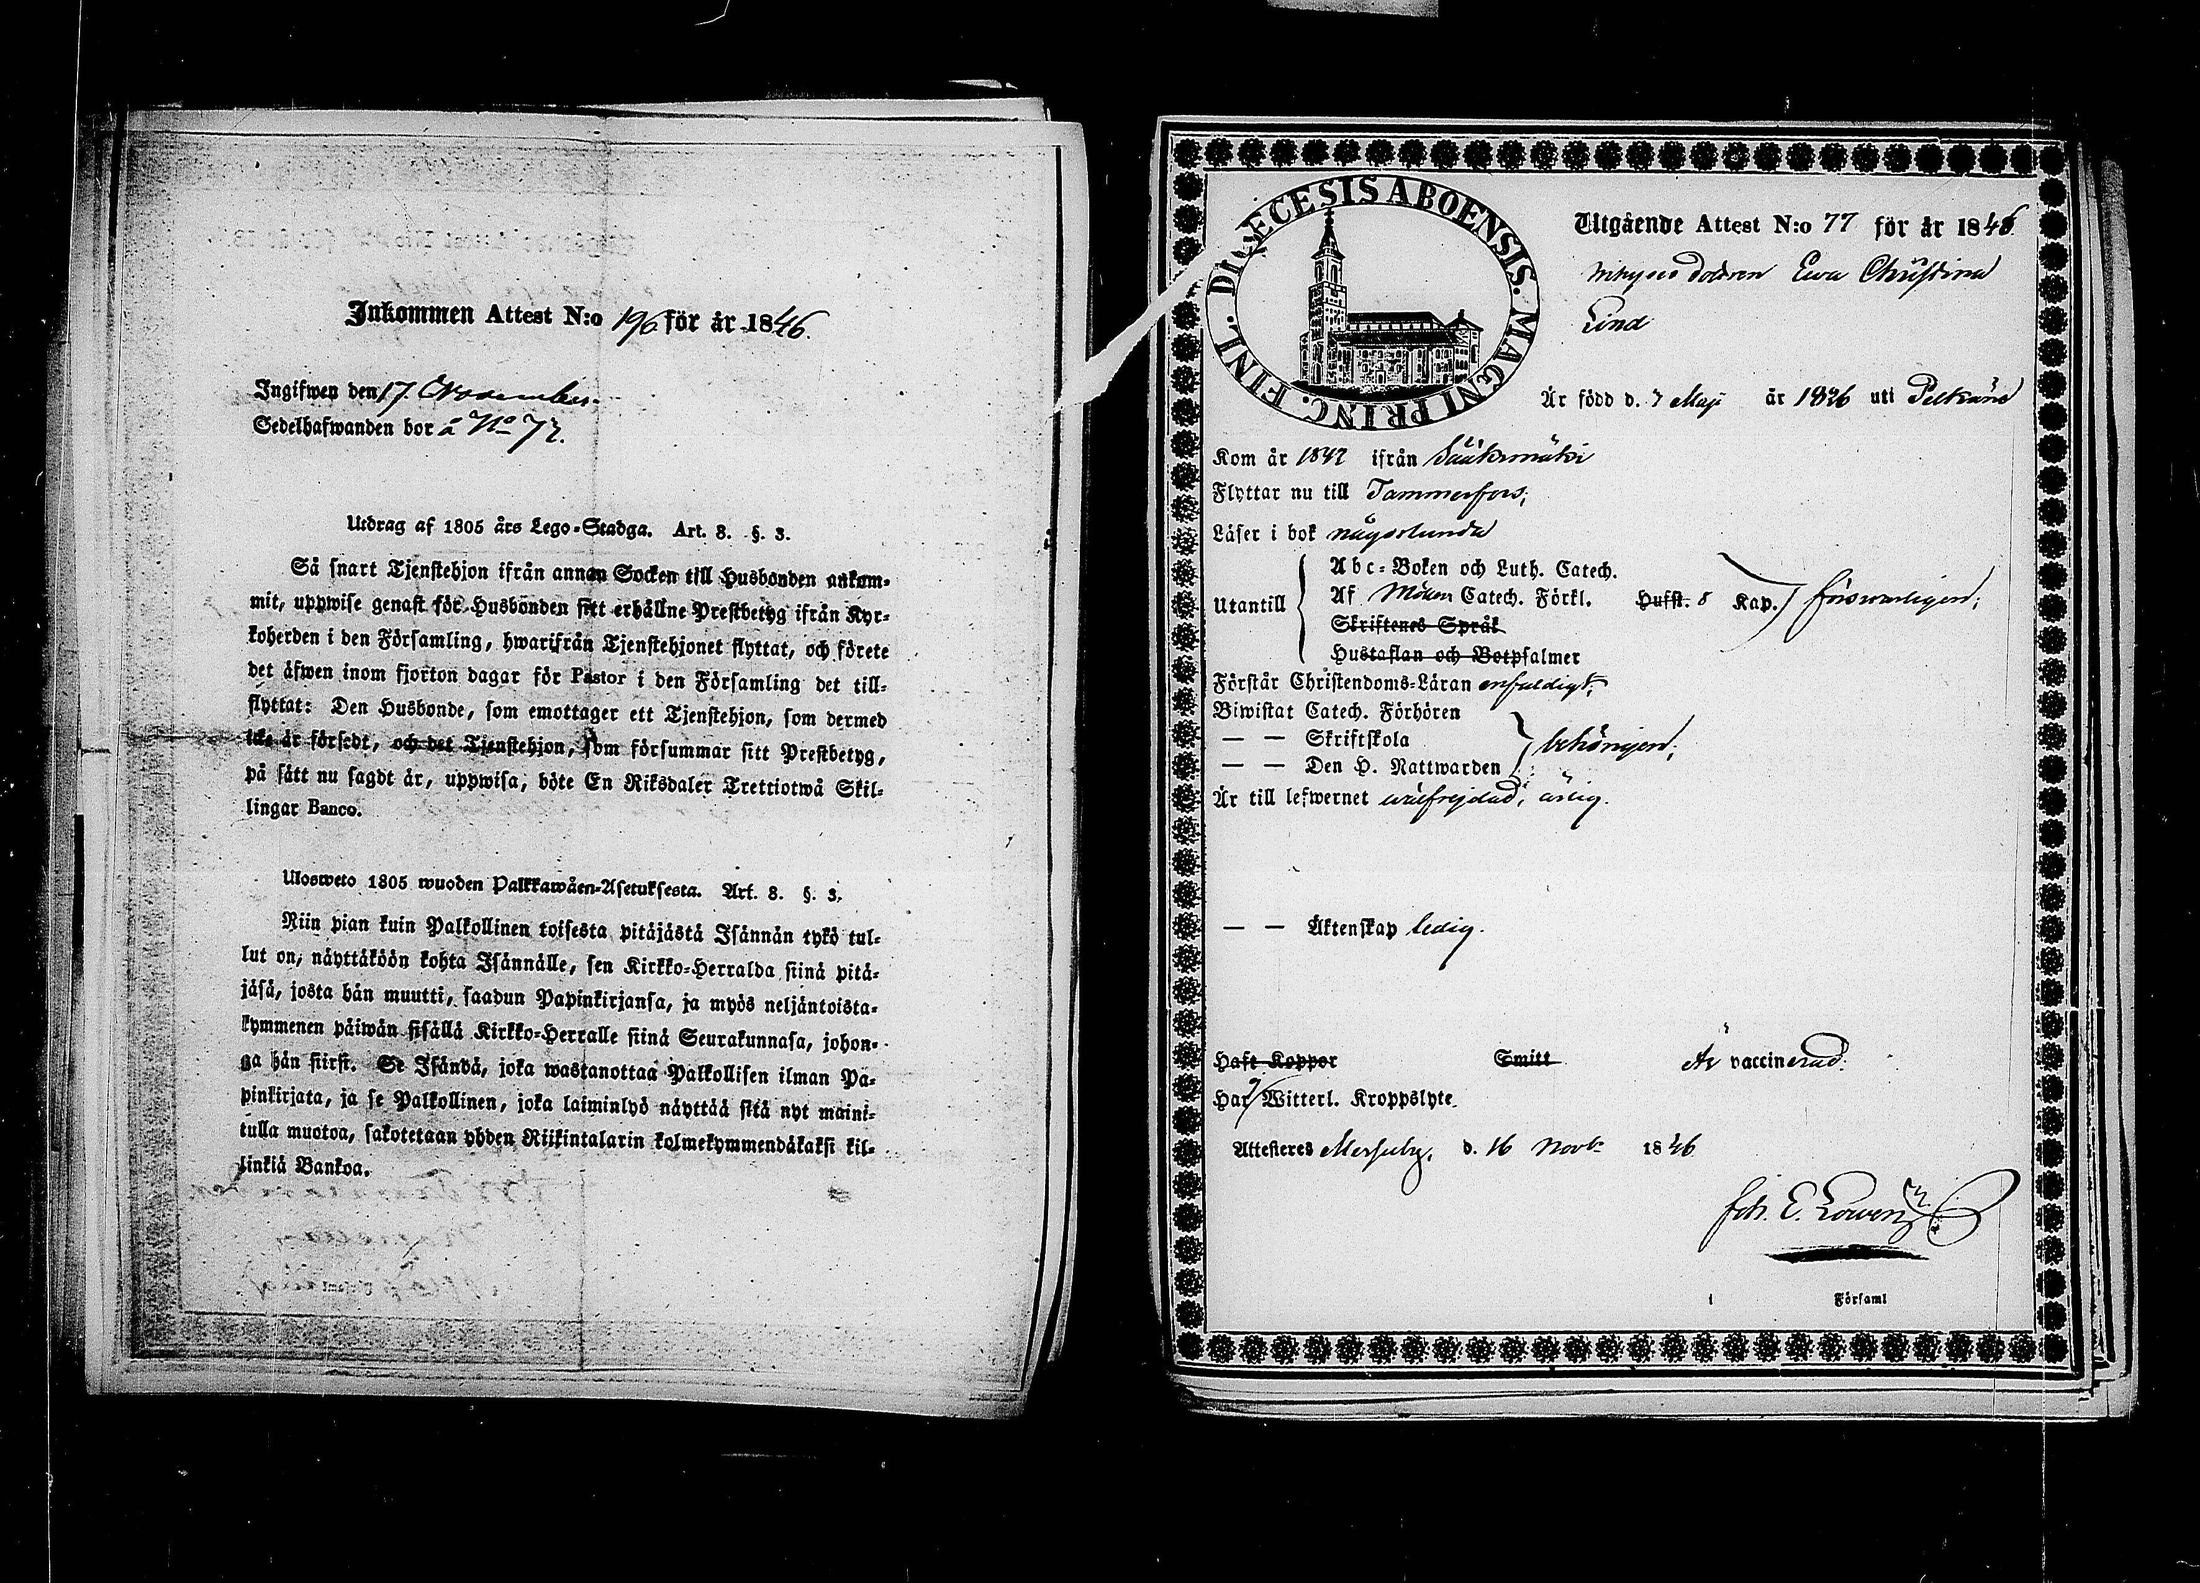 Inkommen Attest N:o 196 för år 1846.
Ingifwen den 17. November.
Sedelhafwanden bor å No 77.
Utdrag af 1805 års Lego-Stadga. Art. 8. §. 3.
Så snart Tjenstehjon ifrån annan Socken till Husbonden ankom-
mit, uppwise genast för Husbonden sitt erhållne Prestbetyg ifrån Kyr-
koherden i den Församling, hwarifrån Tjenstehjonet flyttat, och förete
det äfwen inom fjorton dagar för Pastor i den Församling det till-
flyttat: Den Husbonde, som emottager ett Tjenstehjon, som dermed
icke är försedt, och det Tjenstehjon, som försummar sitt Prestbetyg,
på sätt nu sagdt är, uppwisa, böte En Riksdaler Trettiotwå Skil-
lingar Banco.
Ulosweto 1805 wuoden Palkkawäen-Asetuksesta. Art. 8. §. 3.
Niin pian kuin Palkollinen toisesta pitäjästä Isännän tykö tul-
lut on, näyttäköön kohta Isännälle, sen Kirkko-Herralda siinä pitä-
jäsä, josta hän muutti, saadun Papinkirjansa, ja myös neljäntoista-
kymmenen päiwän sisällä Kirkko-Herralle siinä Seurakunnasa, johon-
ga hän siirsi. Se Isändä, joka wastanottaa Palkollisen ilman Pa-
pinkirjata, ja se Palkollinen, joka laiminlyö näyttää sitä nyt maini-
tulla muotoa, sakotetaan yhden Riikintalarin kolmekymmendäkaksi kil-
linkiä Bankoa.
DIOECESIS ABOENSIS. MAGNI PRINC. FINL.
Utgående Attest N:o 77 för år 1846
Ewa Christina
Lind
Är född d. 7 Maji år 1826 uti Pelkäne
Kom år 1842 ifrån Sääksmäki
Flyttar nu till Tammerfors;
Läser i bok någorlunda
Utantill
Abc-Boken och Luth. Catech.
Af Möllers Catech. Förkl. Hufst. 8 Kap. försvarligen;
Skriftenes Språk
Hustaflan och Botpsalmer
Förstår Christendoms-Läran enfaldigt;
Biwistat Catech. Förhören
— — Skriftskola
— — Den H. Nattwarden behörigen;
Är till lefwernet wälfrejdad; ärlig.
— — Äktenskap ledig.
Haft Koppor Smitt Är vaccinerad.
Har Witterl. Kroppslyte.
Attesteres d. 16 Novbr 1846
Joh. E.
i Församl